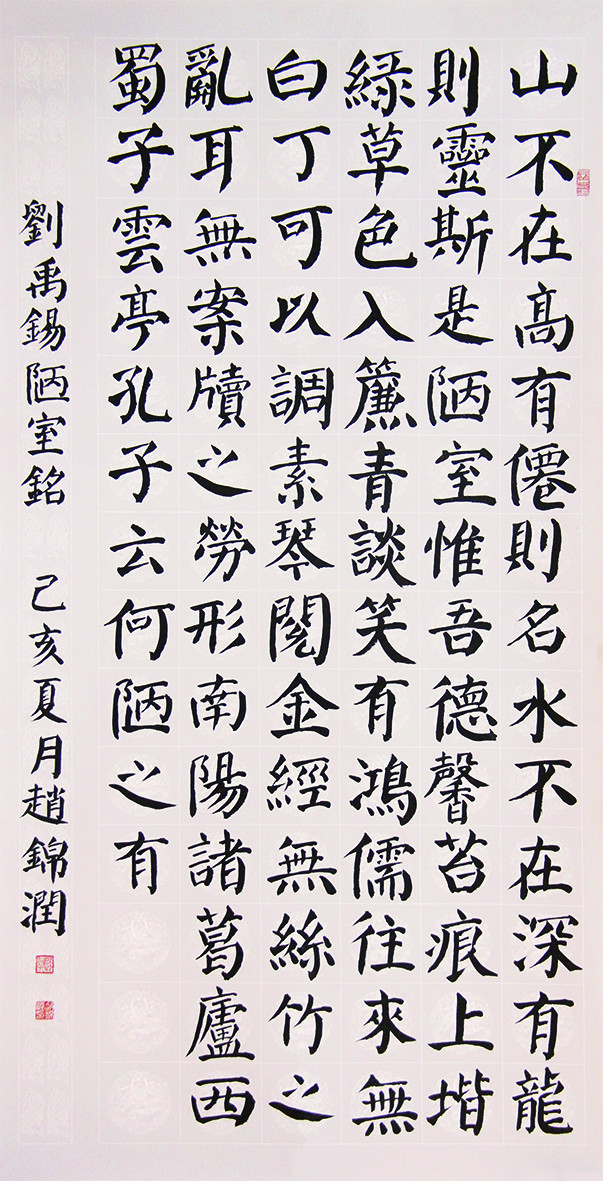 山不在高有僊則名水不在深有龍
則靈斯是陋室惟吾德馨苔痕上堦
綠草色入簾青談笑有鴻儒往來無
白丁可以調素琴閱金經無絲竹之
亂耳無案牘之勞形南陽諸葛廬西
蜀子雲亭孔子云何陋之有
劉禹錫陋室銘 己亥夏月趙錦潤